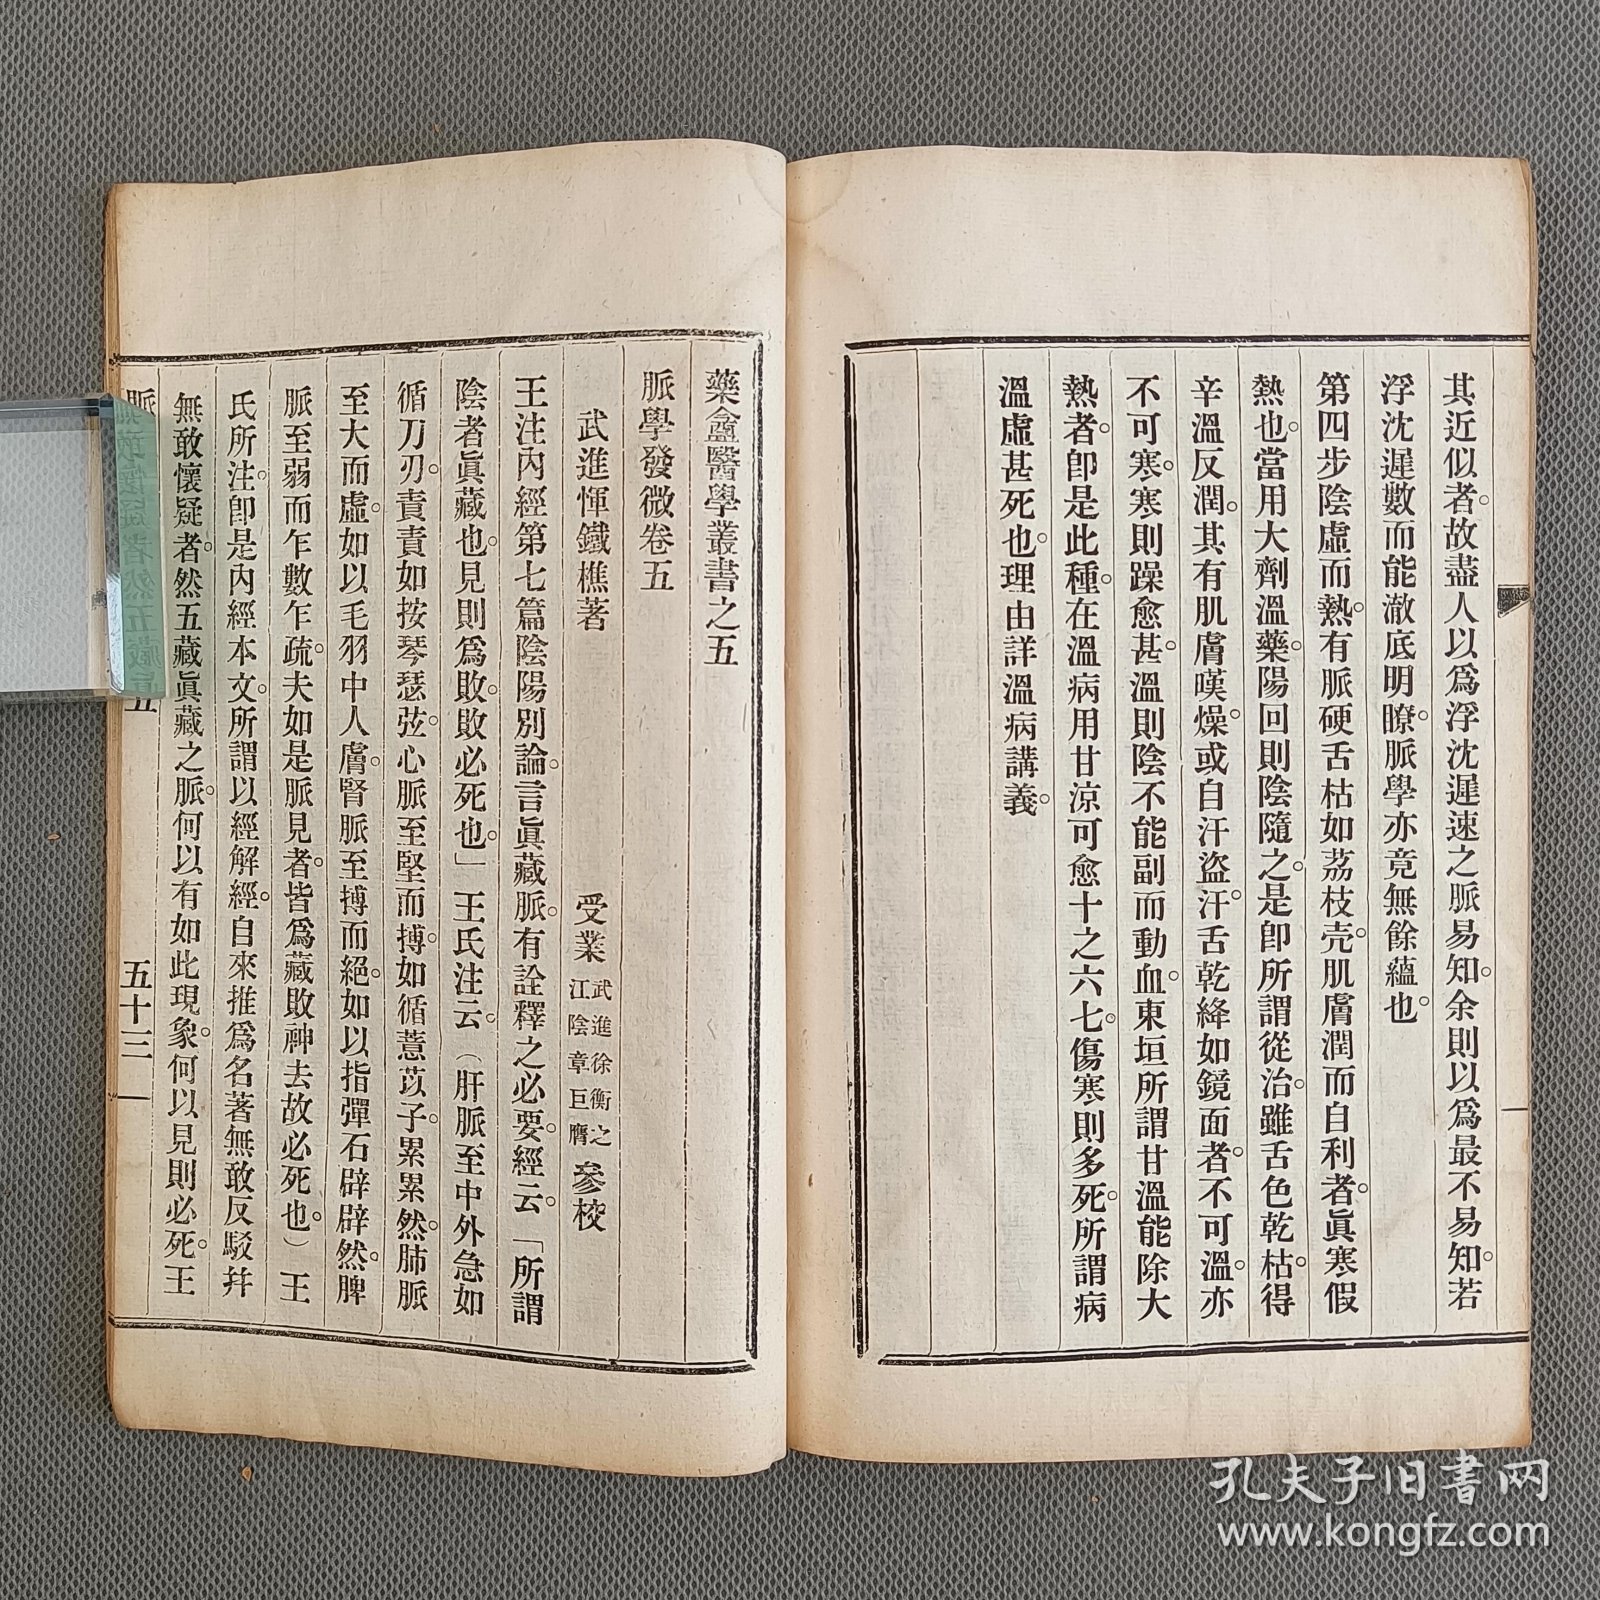 其近似者。故盡人以爲浮沈遲速之脈易知。余則以爲最不易知。若
浮沈遲數而能澈底明瞭。脈學亦竟無餘蘊也。
第四步陰虛而熱。有脈硬舌枯如荔枝壳。肌膚潤而自利者。眞寒假
熱也。當用大劑溫藥。陽回則陰隨之。是卽所謂從治。雖舌色乾枯。得
辛溫反潤。其有肌膚暵燥。或自汗盜汗。舌乾絳如鏡面者。不可溫。亦
不可寒。寒則躁愈甚。溫則陰不能副而動血。東垣所謂甘溫能除大
熱者。卽是此種。在溫病用甘涼可愈十之六七。傷寒則多死。所謂病
溫虛甚死也。理由詳溫病講義。
藥盦醫學叢書之五
脈學發微卷五
武進惲鐵樵著
受業 武進徐衡之 江陰章巨膺 參校
王注內經第七篇陰陽別論。言眞藏脈。有詮釋之必要。經云。「所謂
陰者眞藏也。見則爲敗。敗必死也。」王氏注云。(肝脈至中外急如
循刀刃。責責如按琴瑟弦。心脈至堅而搏。如循薏苡子。累累然。肺脈
至大而虛。如以毛羽中人膚。腎脈至搏而絕。如以指彈石辟辟然。脾
脈至弱而乍數乍疏。夫如是脈見者。皆爲藏敗神去故必死也。)王
氏所注。卽是內經本文。所謂以經解經。自來推爲名著。無敢反駁幷
無敢懷疑者。然五藏眞藏之脈。何以有如此現象。何以見則必死。王
脈
五
五十三
孔夫子旧书网
www.kongfz.com